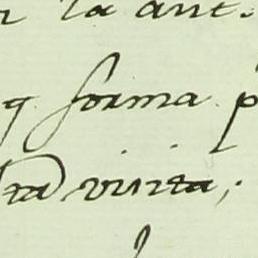 la ant.
q forma p
visita;